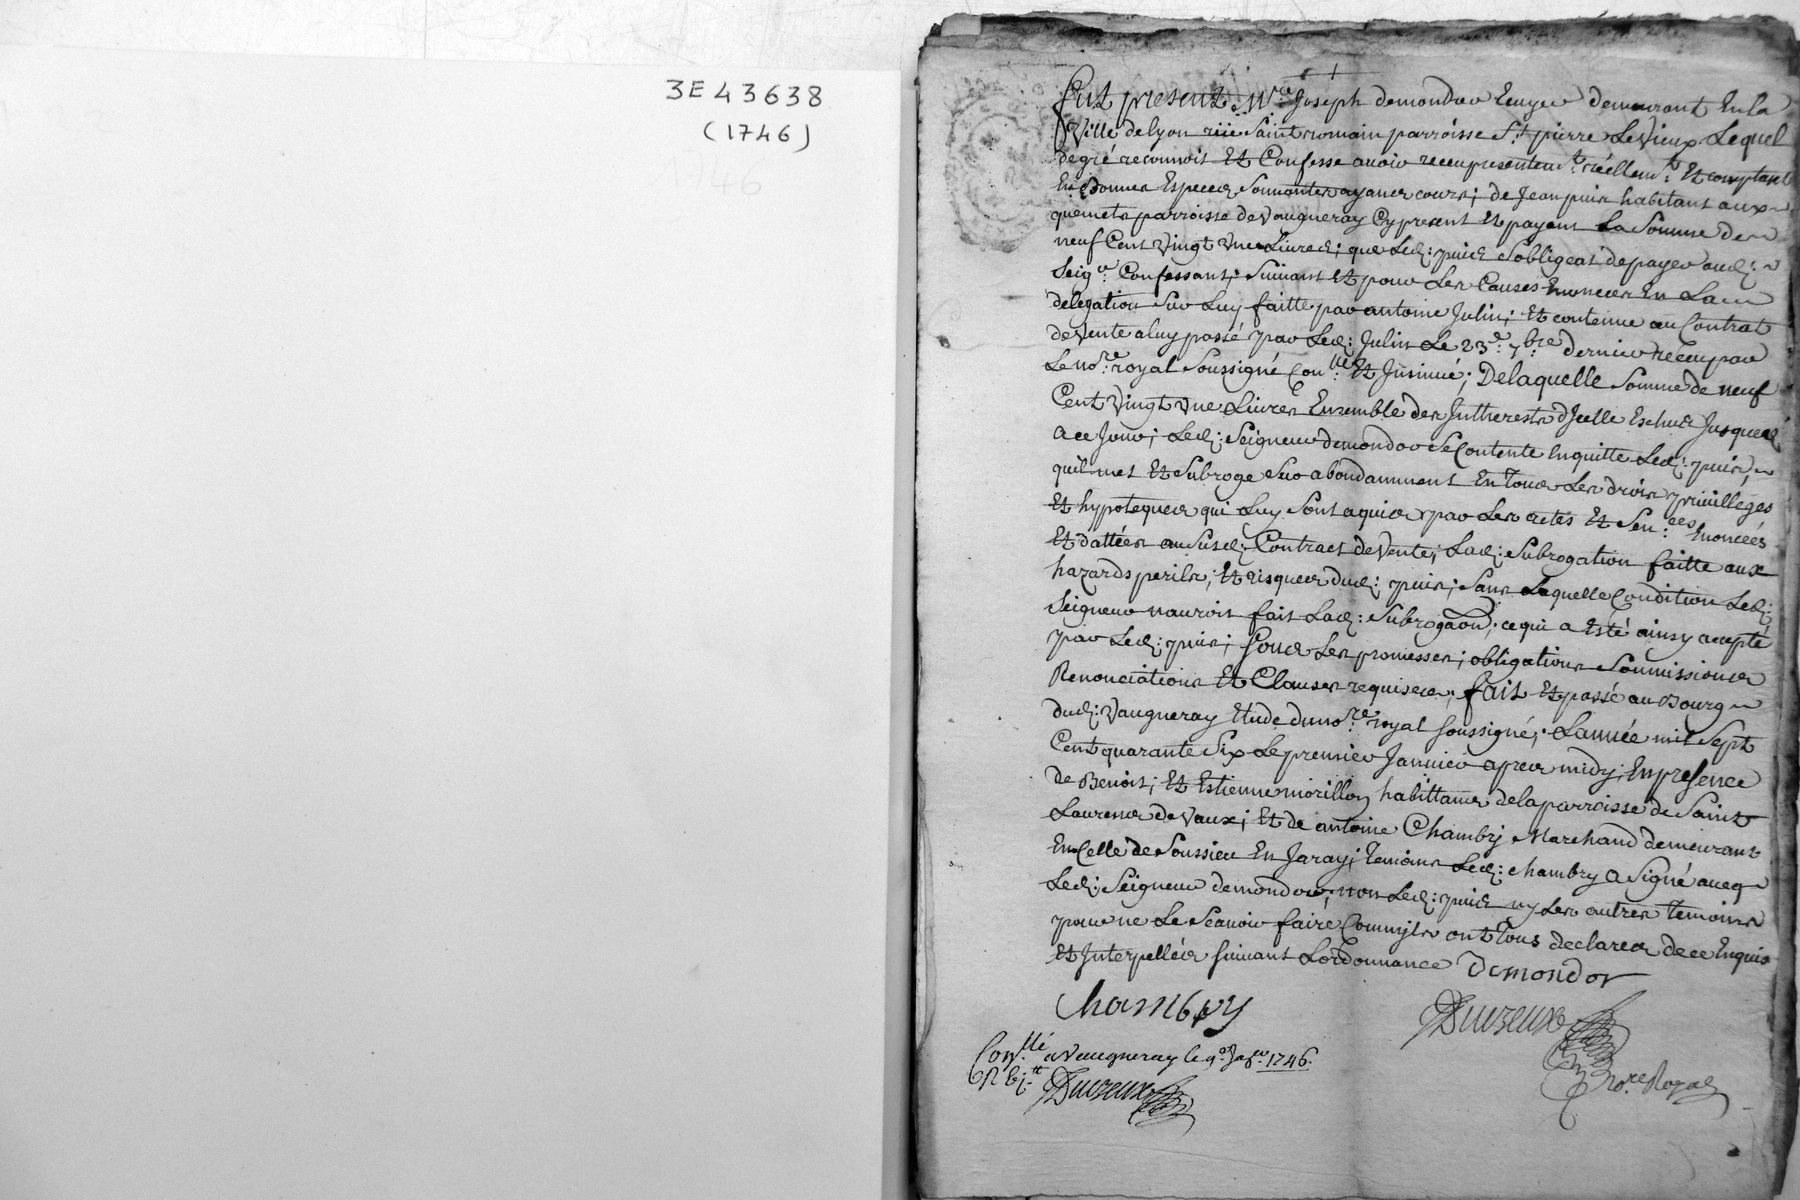 3E43638
(1746)
fut present Mre Joseph demondor Ecuyer demeurant En la
Ville de lyon rüe Saint romain parroisse St. pierre Le Vieux Lequel
de gré reconnoit Et Confesse avoir receu presentemt. réellemt. Et comptant
En Bonnes Especes Sonnantes ayances cours; de Jean puis habitant aux
quemets parroisse de Vaugneray Cy present Et payant La Somme de
neuf Cent Vingt Une Livres; que Led: puis S'obligeat de payer aud:
Seigr. Confessant; Suivant Et pour Les Causes Enoncées En La
delegation Sur Luy faitte par antoine Julin; Et contenue au Contrat
de Vente a luy passé par Led: Julin Le 23e. 7bre dernier receu par
Le nore. royal Soussigné Conllé. Et Jnsinué; De laquelle Somme de neuf
Cent Vingt Une Livres Ensemble des Jntherests d'Jcelle Eschus Jusques
a ce Jour; Led: Seigneur demondor Se Contente En quitte Led: puis;
quil met Et Subroge Sur abondamment En Tous Les droits privilleges
Et hypoteques qui Luy Sont aquis par Les actes Et Sences. Enoncéés
Et dattées au Susd: Contract de Vente; Lad: Subrogation faitte aux
hazards perils; Et risques dud: puis; Sans Laquelle Condition Led:
Seigneur n'auroit fait Lad: Subrogãon; ce qui a Esté ainsy accepté
par Led: puis; Sous Les promesses; obligations Soumissions
Renonciations Et Clauses requises; fait Et passé au Bourg
dud: Vaugneray Etude du nore. royal Soussigné; L'année mil Sept
Cent quarante Six Le premier Janvier apres midy; En presence
de Benoit; Et Estienne morillon habittants de la parroisse de Saint
Laurent de Vaux; Et de antoine Chambry Marchand demeurant
En Celle de Soussieu En Jaray; Temoins Led: chambry a Signé avecq
Led: Seigneur demondor; non Led: puis ny Les autres Temoins
pour ne Le Scavoir faire Comm'ils ont Tous declarer de ce Enquis
Et Jnterpellés Suivant L'ordonnance Demondor
Chambry
Duvzeux
nore. Royal
Conllé a Vaugneray le 9e. Janer. 1746.
Duvzeux